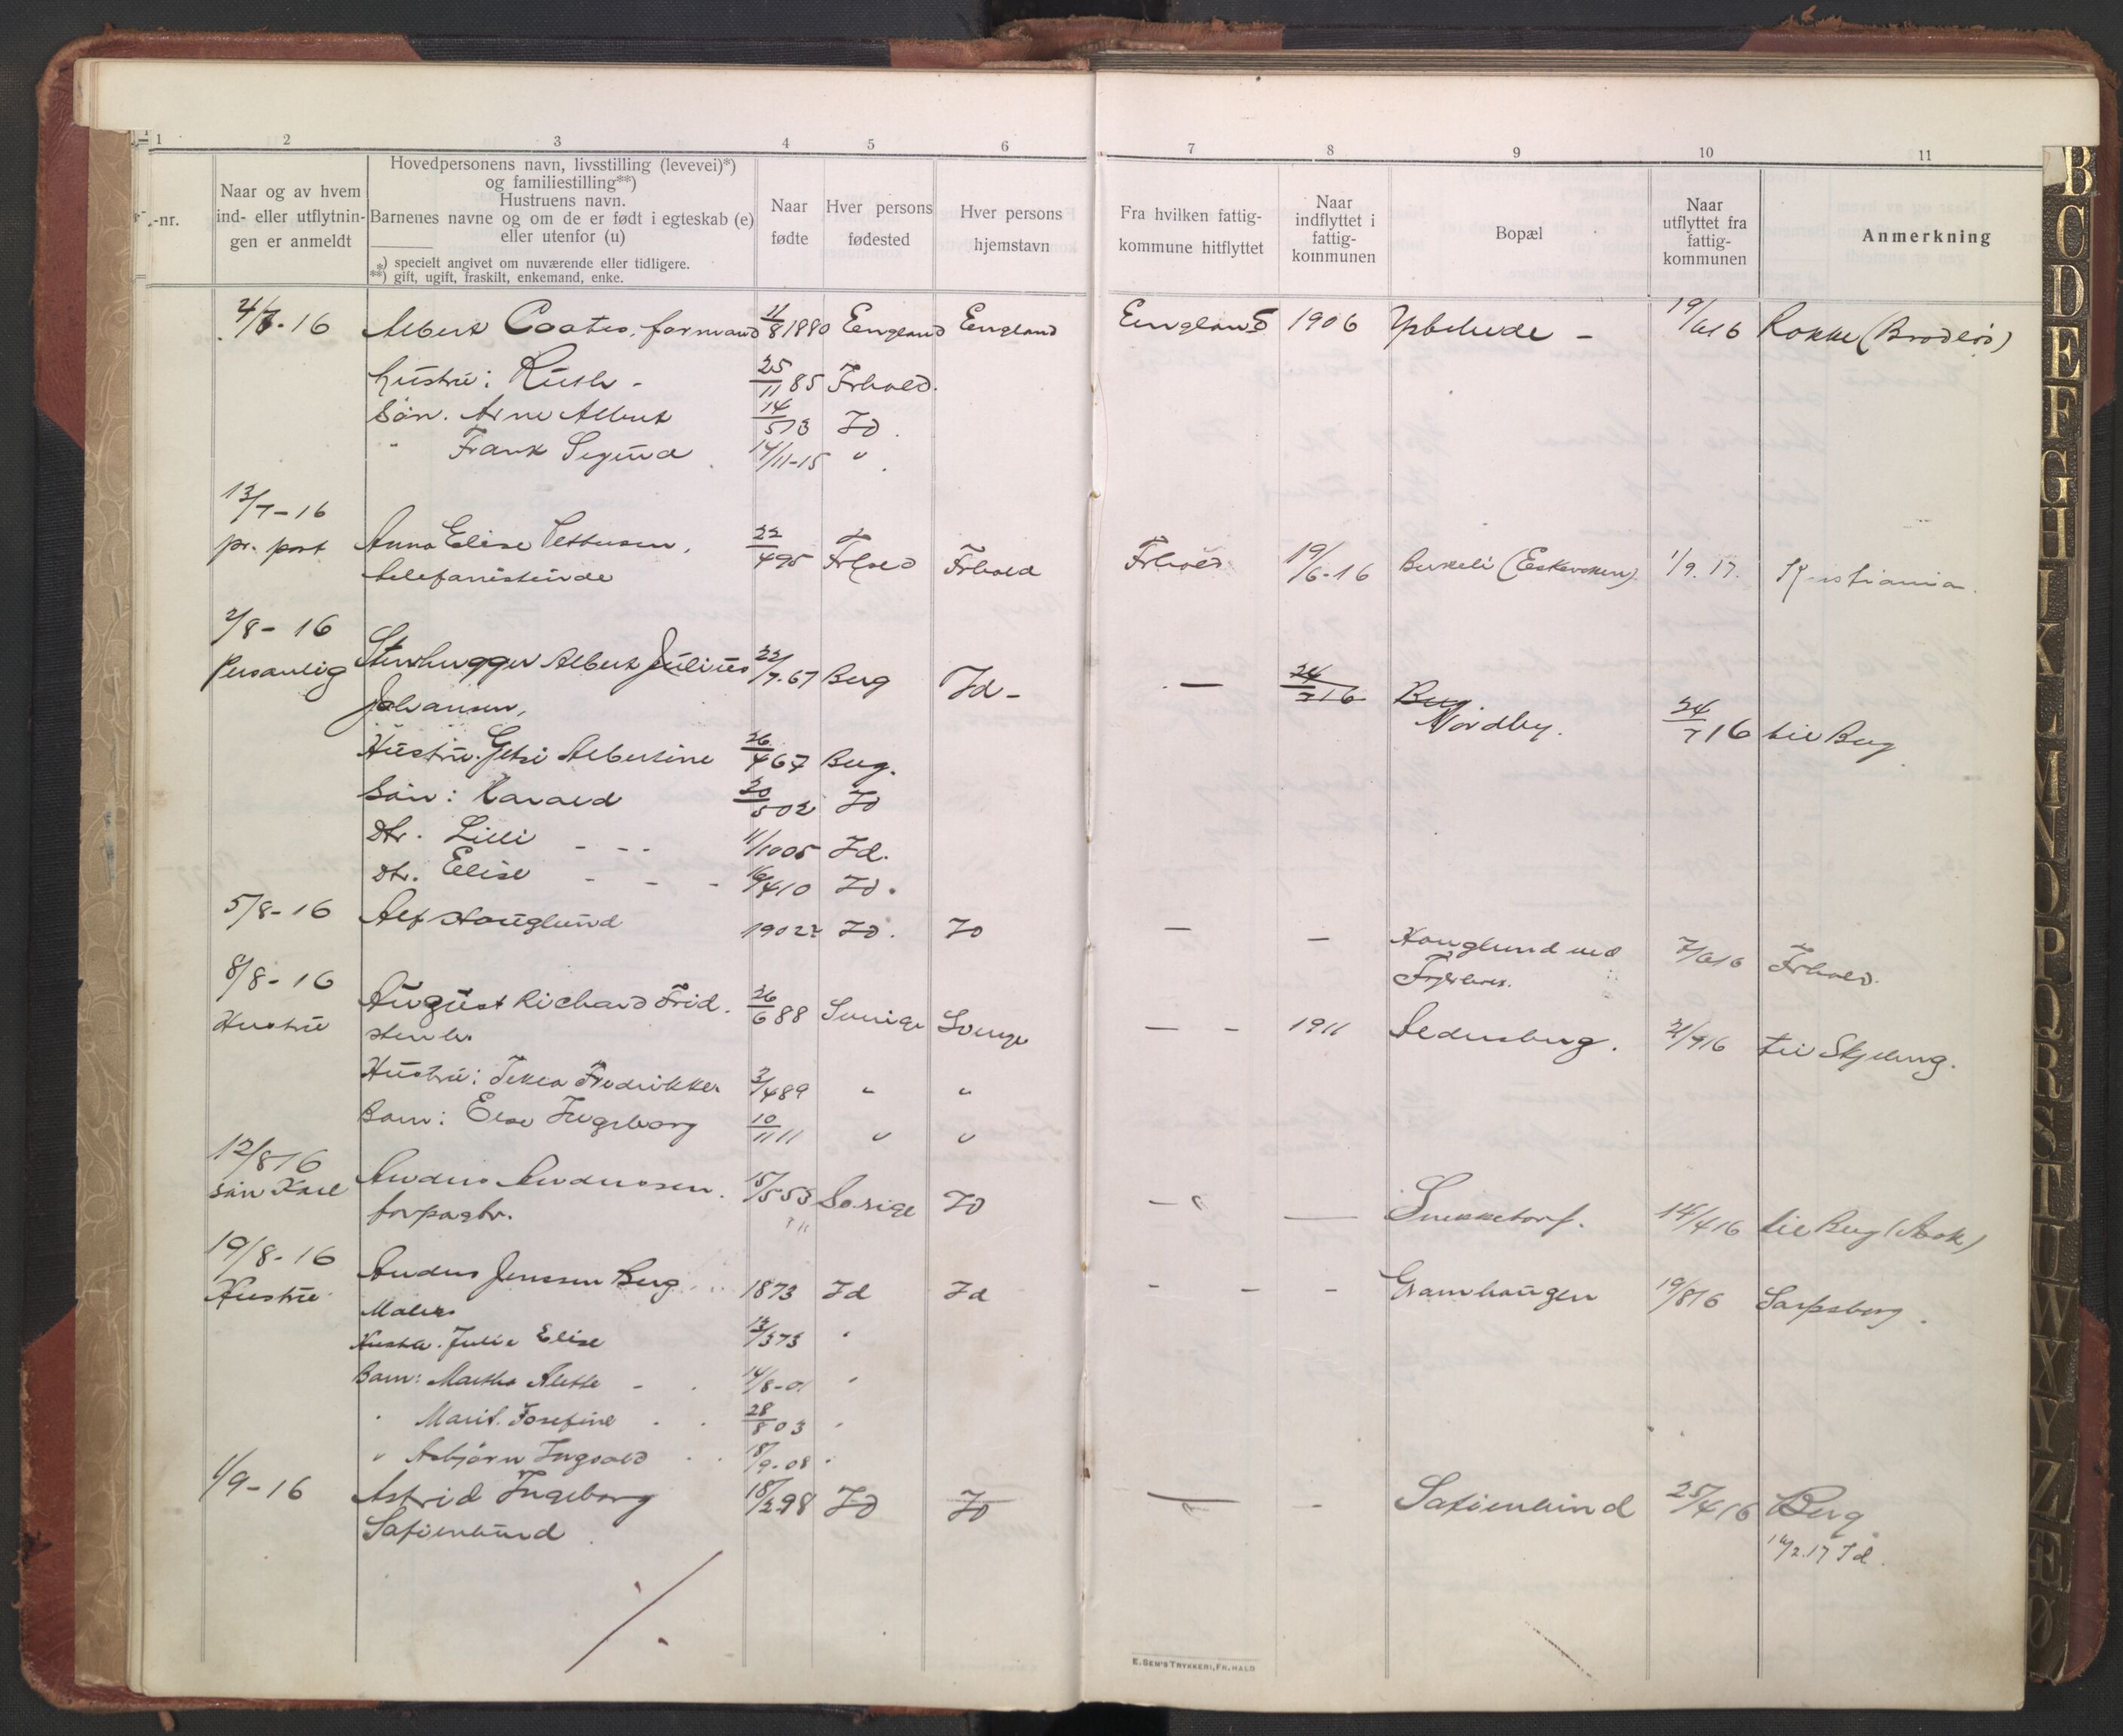 1 2 3 4 5 6 7 8 9 10 11
-nr.
Naar og av hvem
ind- eller utflytnin-
gen er anmeldt
Hovedpersonens navn, livsstilling (levevei)*)
og familiestilling**)
Hustruens navn.
Barnenes navne og om de er født i egteskab (e)
eller utenfor (u)
*) specielt angivet om nuværende eller tidligere.
**) gift, ugift, fraskilt, enkemand, enke.
Naar
fødte
Hver persons
fødested
Hver persons
hjemstavn
Fra hvilken fattig-
kommune hitflyttet
Naar
indflyttet i
fattig-
kommunen
Bopæl
Naar
utflyttet fra
fattig-
kommunen
Anmerkning
4/7-16 Albert Coates, formand 11/8 1880 England England England 1906 19/616 Rokke
hustru: Ruth - 25/11 85 Frhald.
Søn. Arne Albert 14/513 Id.
" Frank Sigurd 14/11-15 "
13/7-16
pr. post Anna Elise 22/495 Frhald Frhald Frhald 19/6-16 1/9.17. Kristiania.
telefonistinde
2/8-16
Personlig Stenhugger Albert Julius 22/7.67 Berg Id- — 24/716 Berg 24/716 til Berg
Johansen, Nordby.
Hustru. Albertine 26/467 Berg.
Søn: Harald 20/502 Id
Dtr. Lilli - - - 11/1005 Id.
Dtr. Elise - - - 16/410 Id.
5/8-16 Alf Houglund 1902 Id. Id — — Houglund ved 7/616 Frhald.
8/8-16
Hustru August Richard Frid. 26/688 Sverige Sverige — - 1911 til Skjeberg.
stenh.
Hustru: Fredrikke 3/489 " "
Barn: Else Ingeborg 10/1111 " "
12/816
søn Karl Anders Anderssen. 15/553 Sverige Id — — 14/416 til Berg
forpagtr.
19/8-16
Hustru Anders Jenssen Berg 1873 Id Id - - - Gramhaugen 19/816 Sarpsborg.
Maler
Hustru. Julie Elise 13/373 "
Barn: Martha Alette - . 14/8-01 "
" Marit. Josefine . . 28/803 "
" Asbjørn Ingvald . . 18/9-08 "
1/9-16 Astrid Ingeborg 18/298 Id Id — - Sofienlund 25/416 Berg
Sofienlund 16/2.17 Id.
E. SEM'S TRYKKERI, FR.HALD
B
C
D
E
F
G
H
I
K
L
M
N
O
P
Q
R
S
T
U
W
X
Y
Z
Æ
Ø